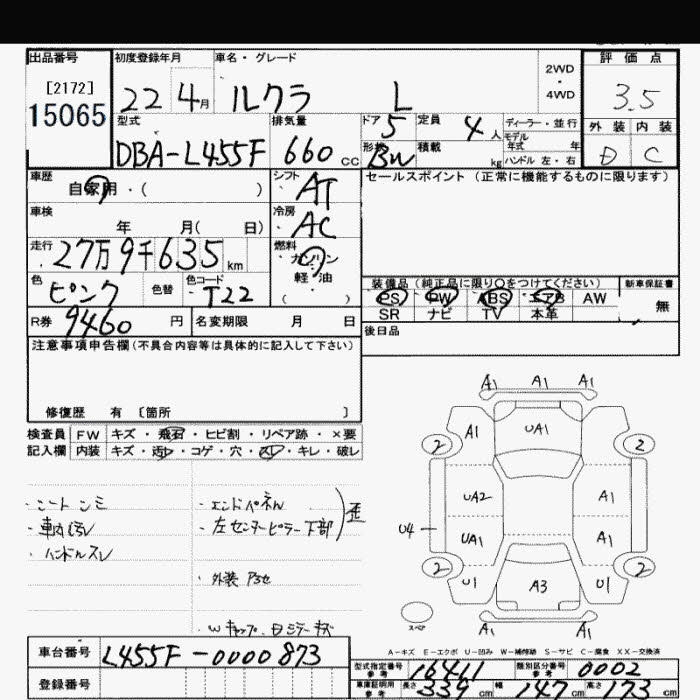 出品番号
[2172]
15065
初度登録年月
22年 4月
車名・グレード
ルクラ L
2WD
・
4WD
評価点
3.5
外装 内装
D C
型式
DBA-L455F
排気量
660 cc
ドア
5
定員
4人
形状
BW
積載
kg
ディーラー・並行
モデル
年式 年
ハンドル 左・右
車歴
自家用・( )
シフト
AT
車検
年 月( 日)
冷房
AC
走行
27万9千635 km
燃料
ガソリン
軽油
( )
色
ピンク
色替
色コード
T22
R券
9460 円
名変期限 月 日
セールスポイント(正常に機能するものに限ります)
装備品(純正品に限り○をつけてください)
PS PW ABS エアB AW
SR ナビ TV 本革
新車保証書
無
後日品
注意事項申告欄(不具合内容等は具体的に記入して下さい)
修復歴 有 〔箇所 〕
検査員
記入欄
FW キズ・飛石・ヒビ割・リペア跡・×要
内装 キズ・汚レ・コゲ・穴・スレ・キレ・破レ
・シートシミ
・車内汚レ
・ハンドルスレ
・エンドパネル
・左センターピラー下部
歪
・外装
A1 A1 A1
A1 UA1
2 2
UA2 A1
U4
UA1 A1
2 2
U1 A3 U1
A1 A1
スペア
A-キズ E-エクボ U-凹み W-補修跡 S-サビ C-腐食 XX-交換済
車台番号
L455F-0000873
登録番号
型式指定番号
参考
16411
類別区分番号
参考
0002
車庫証明用
参考
長さ 339 cm
幅 147 cm
高さ 173 cm